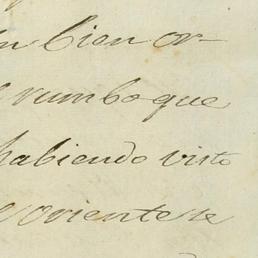 un bien or-
rumbo que
habiendo visto
oriente se